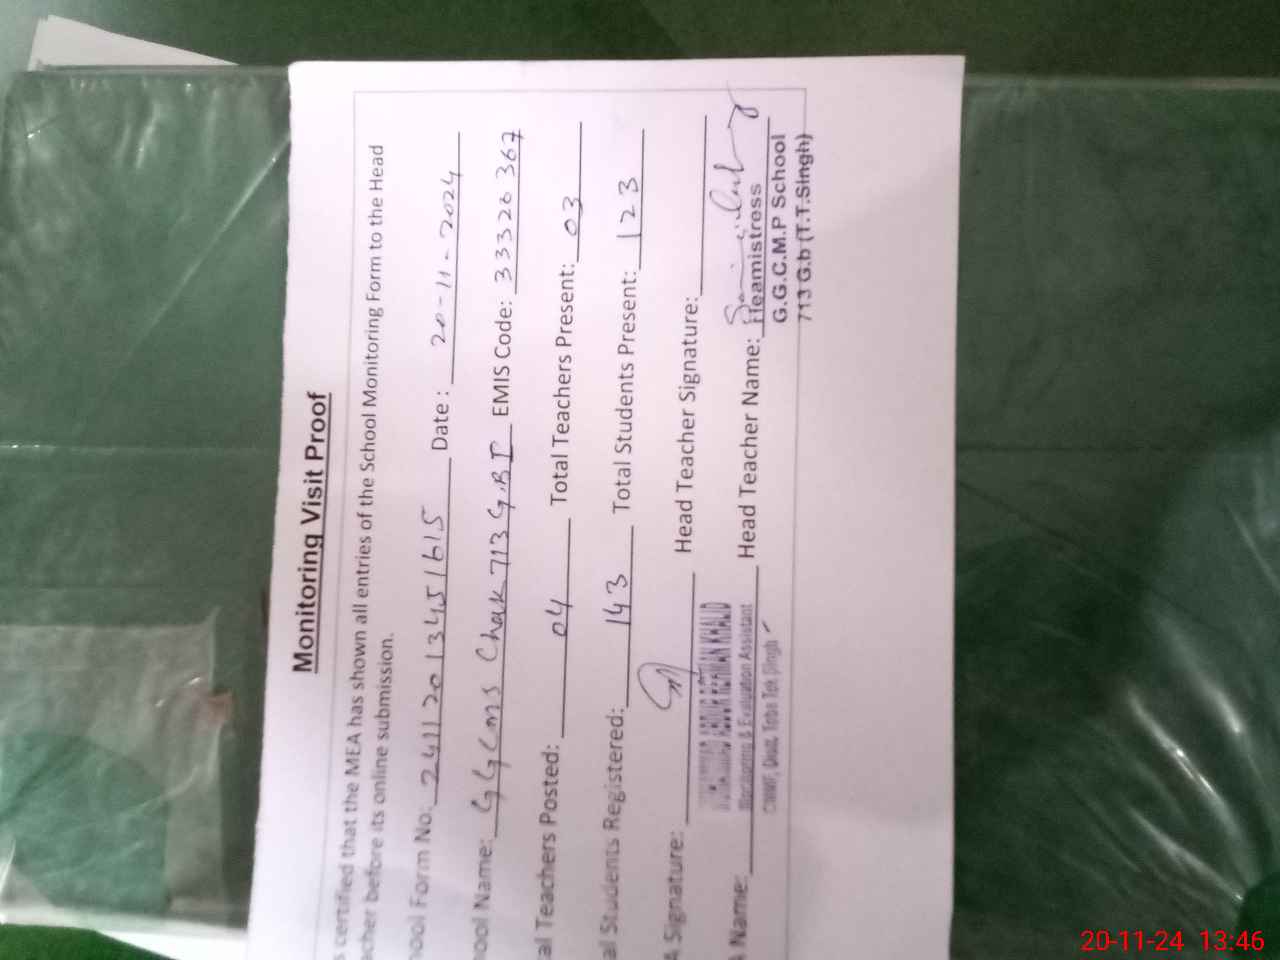 Monitoring Visit Proof
certified that the MEA has shown all entries of the School Monitoring Form to the Head
acher before its online submission.
hool Form No: 24112013451615 Date : 20-11-2024
hool Name: GGCMS Chak 713 G.B I EMIS Code: 33326367
al Teachers Posted: 04 Total Teachers Present: 03
al Students Registered: 143 Total Students Present: 123
A Signature: Head Teacher Signature:
A Name: Head Teacher Name:
KHALID
Monitoring & Evaluation Assistant
CMMF, Distt. Toba Tek Singh
Heamistress
G.G.C.M.P School
713 G.b (T.T.Singh)
20-11-24 13:46